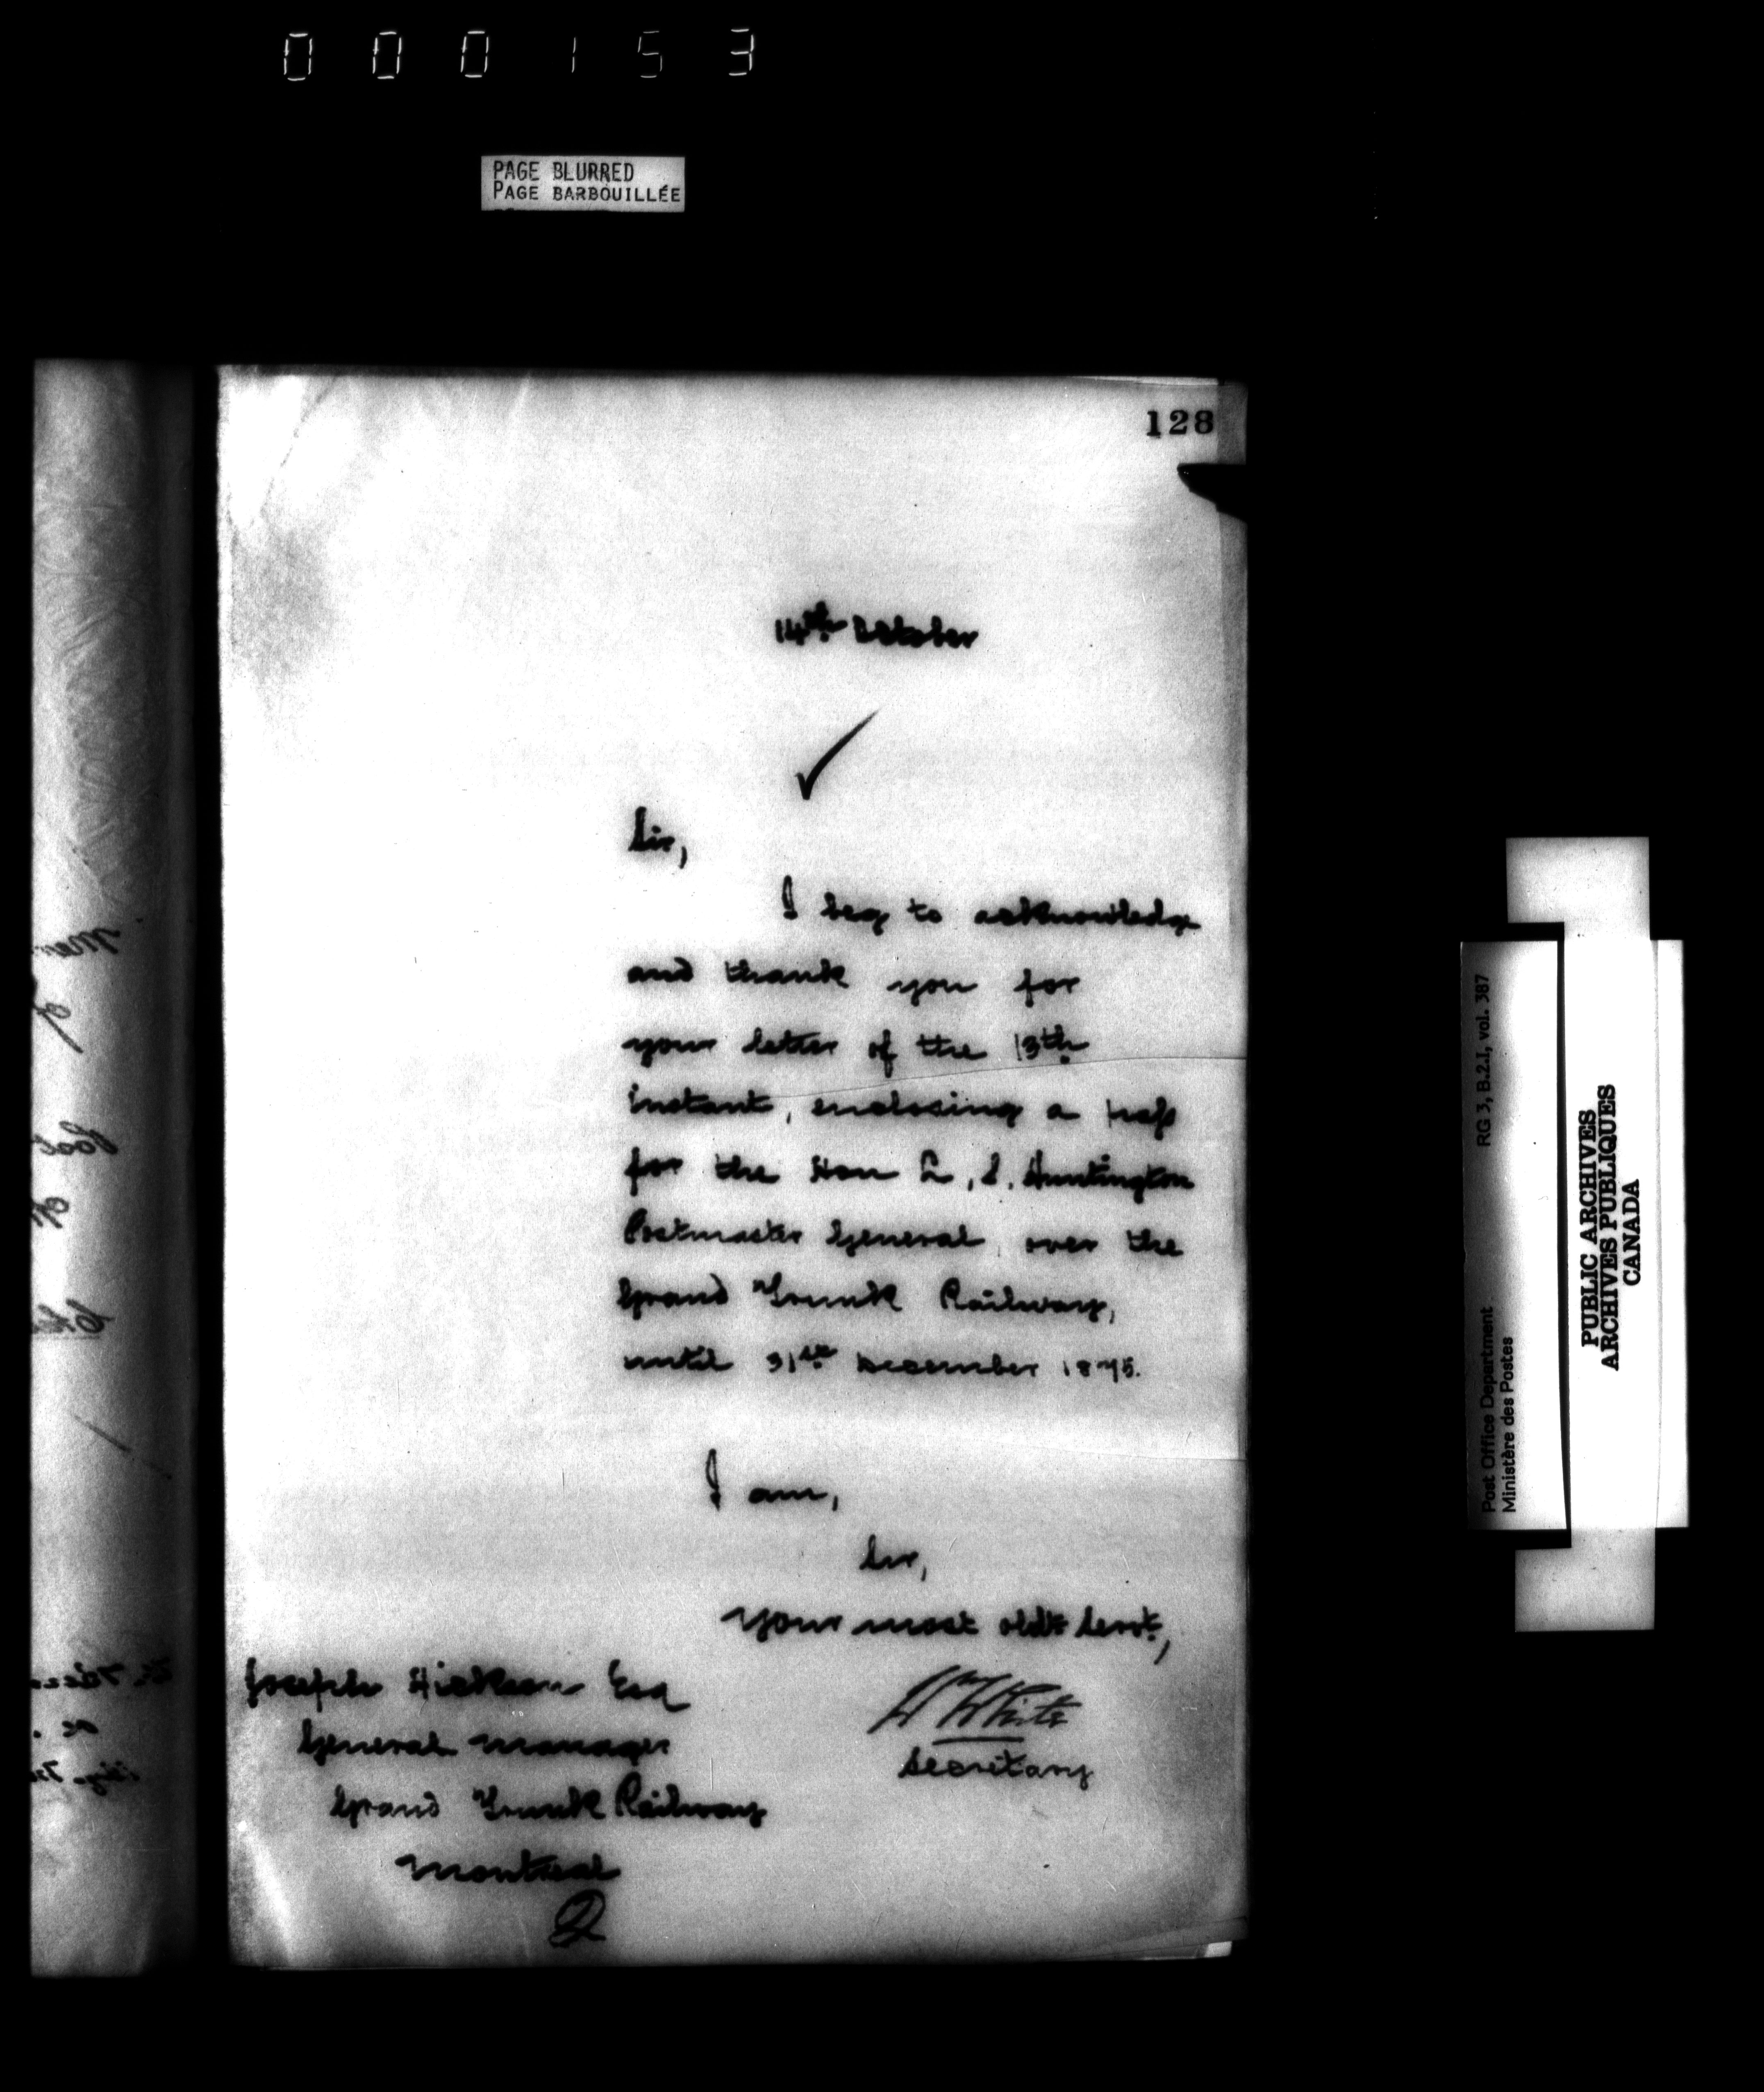 000153
PAGE BLURRED
PAGE BARBOUILLÉE
128
14th October
Sir,
I beg to acknowledge
and thank you for
your letter of the 13th
instant, enclosing a pass
for the Hon L. S. Huntington
Postmaster General, over the
Grand Trunk Railway,
until 31st December 1875.
I am,
Sir,
Your most obdt Servt,
W White
Secretary
Joseph Hickson Esq
General Manager
Grand Trunk Railway
Montreal
RG 3, B.2.1, vol. 387
Post Office Department
Ministère des Postes
PUBLIC ARCHIVES
ARCHIVES PUBLIQUES
CANADA